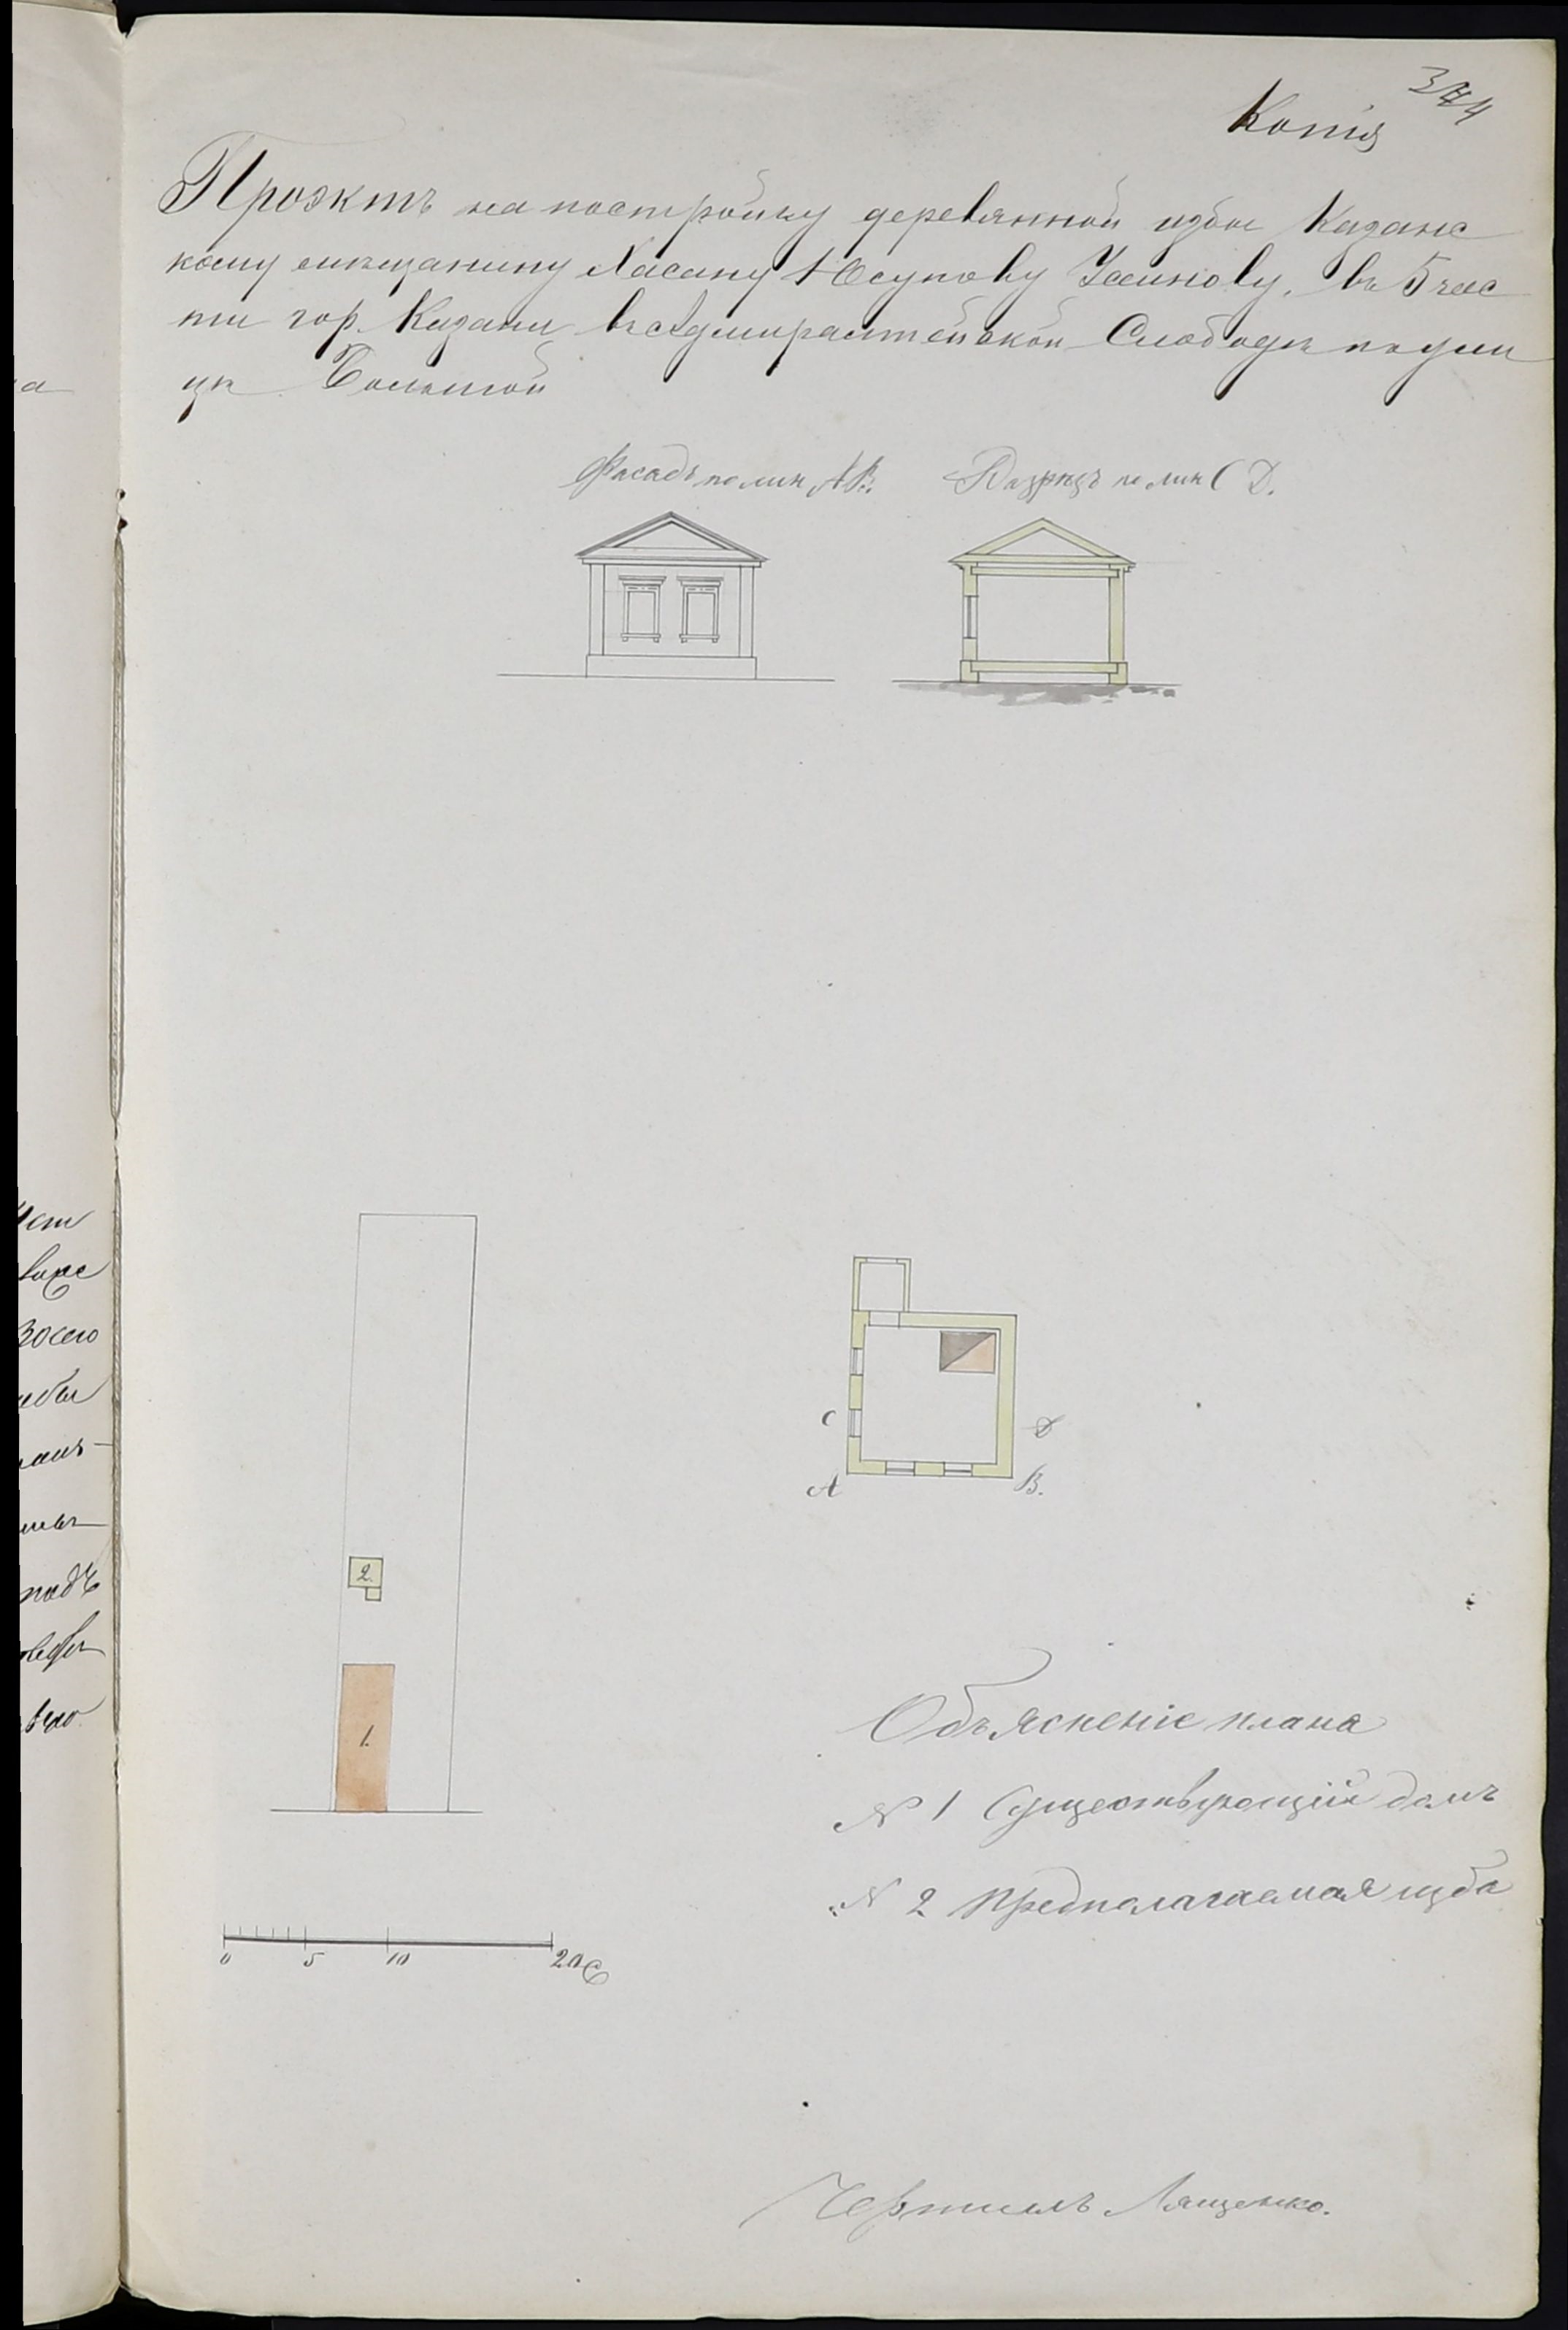 374
Копія
Проэктъ на постройку деревянной избы Казанс
кому мѣщанину Хасану Юсупову Усманову, въ 5 час
ти гор. Казани въ Адмиралтейской Слободѣ по ули
цѣ Большой
Фасадъ по лин. АВ.
Разрѣзъ по лин С D.
C
D
A
B.
2.
1.
Объясненіе плана
N 1 Существующій домъ
N 2 Предполагаемая изба
0 5 10 20 С
Чертилъ Лященко.